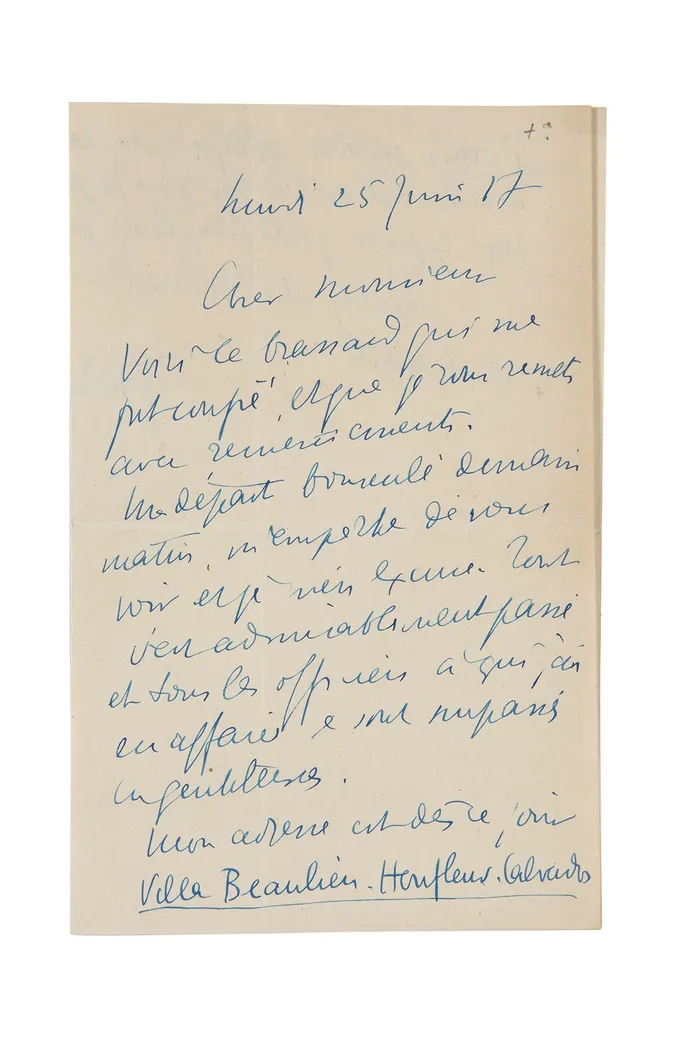 +?
lundi 25 Juin 17
Cher monsieur
Voici le brassard qui me
fut confié, et que je vous remets
avec remerciements.
Mon départ bousculé demain
matin, m'empêche de vous
voir et je m'en excuse. Tout
s'est admirablement passé
et tous les officiers à qui j'ai
eu affaire se sont surpassés
en gentillesses.
Mon adresse est dès ce jour
Villa Beaulieu. Honfleur. Calvados